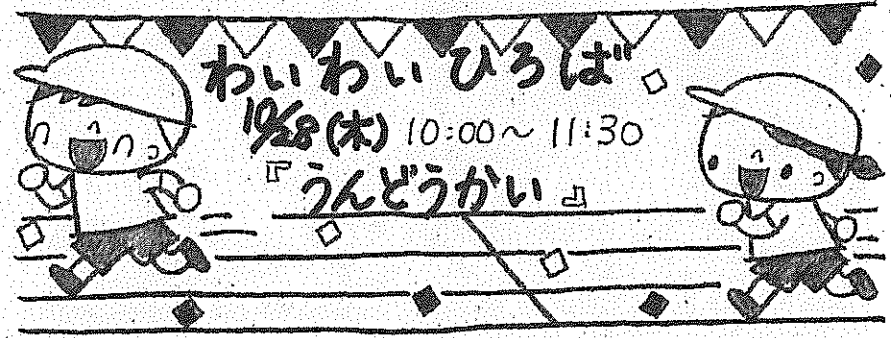 わいわいひろば
10/28(木) 10:00～11:30
『うんどうかい』